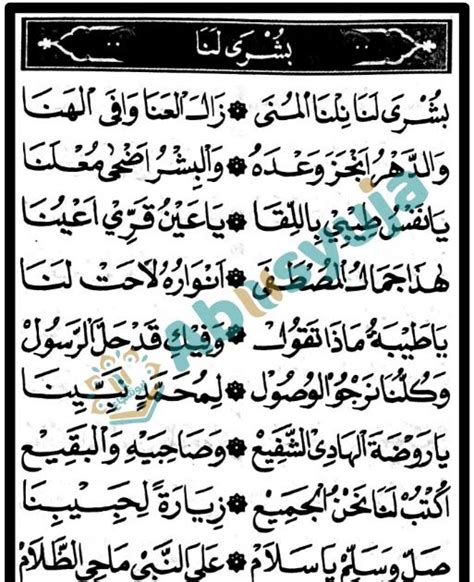 بُشْرَى لَنَا
بُشْرَى لَنَا نِلْنَا الْمُنَى ۞ زَالَ الْعَنَا وَافَى الْهَنَا
وَالدَّهْرُ اَنْجَزَ وَعْدَهُ ۞ وَالْبِشْرُ اَضْحَى مُعْلَنَا
يَانَفْسُ طِيْبِيْ بِاللِّقَا ۞ يَاعَيْنُ قَرِّيْ اَعْيُنَا
هٰذَا جَمَالُ الْمُصْطَفَى ۞ اَنْوَارُهُ لَاحَتْ لَنَا
يَاطَيْبَةُ مَاذَا نَقُوْلُ ۞ وَفِيْكِ قَدْ حَلَّ الرَّسُوْلُ
وَكُلُّنَا نَرْجُو الْوُصُوْلَ ۞ لِمُحَمَّدٍ نَبِيِّنَا
يَارَوْضَةَ الْهَادِى الشَّفِيْعِ ۞ وَصَاحِبَيْهِ وَالْبَقِيْعِ
اُكْتُبْ لَنَا نَحْنُ الْجَمِيْعِ ۞ زِيَارَةً لِحَبِيْبِنَا
صَلِّ وَسَلِّمْ يَاسَلَامْ ۞ عَلَى النَّبِيْ مَاحِى الظَّلَامْ
Abusyuja